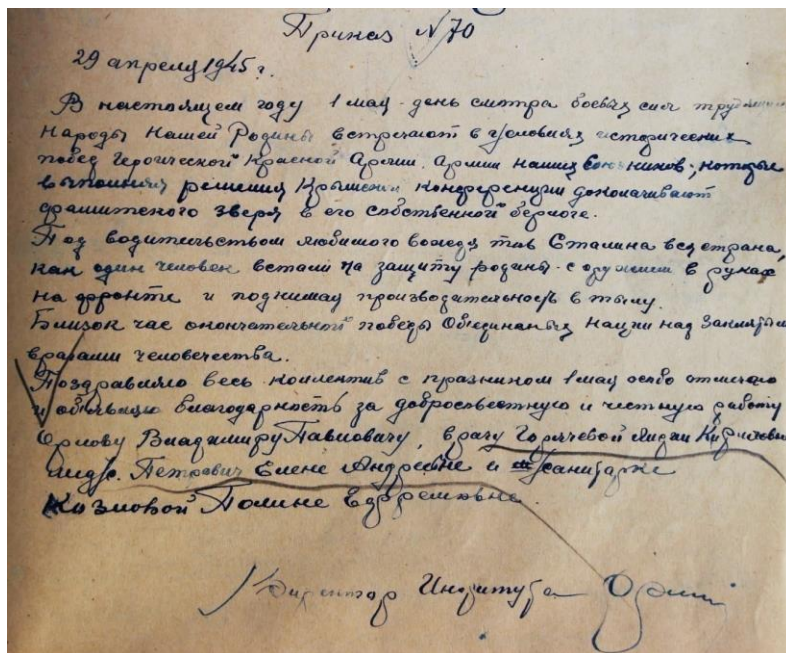 Приказ №70
29 апреля 1945 г.
В настоящем году 1 мая - день смотра боевых сил трудящ
Народы Нашей Родины встречают в условиях исторических
побед Героической Красной Армии, Армии наших Союзников, которые
выполняя решения Крымской конференции доколачивают
фашистского зверя в его собственной берлоге.
Под водительством любимого вождя тов Сталина вся страна,
как один человек встали на защиту родины с оружием в руках
на фронте и поднимая производительность в тылу.
Близок час окончательной победы Объединаных наций над заклятым
врагами человечества.
Поздравляю весь коллектив с празником 1 мая особо отмечаю
и объявляю благодарность за добросовестную и честную работу
Орлову Владимиру Павловичу, врачу Горячевой Лидии Кириловне
медс. Петрович Елене Андреевне и санитарке
Козловой Полине Ефремовне.
Директор Института